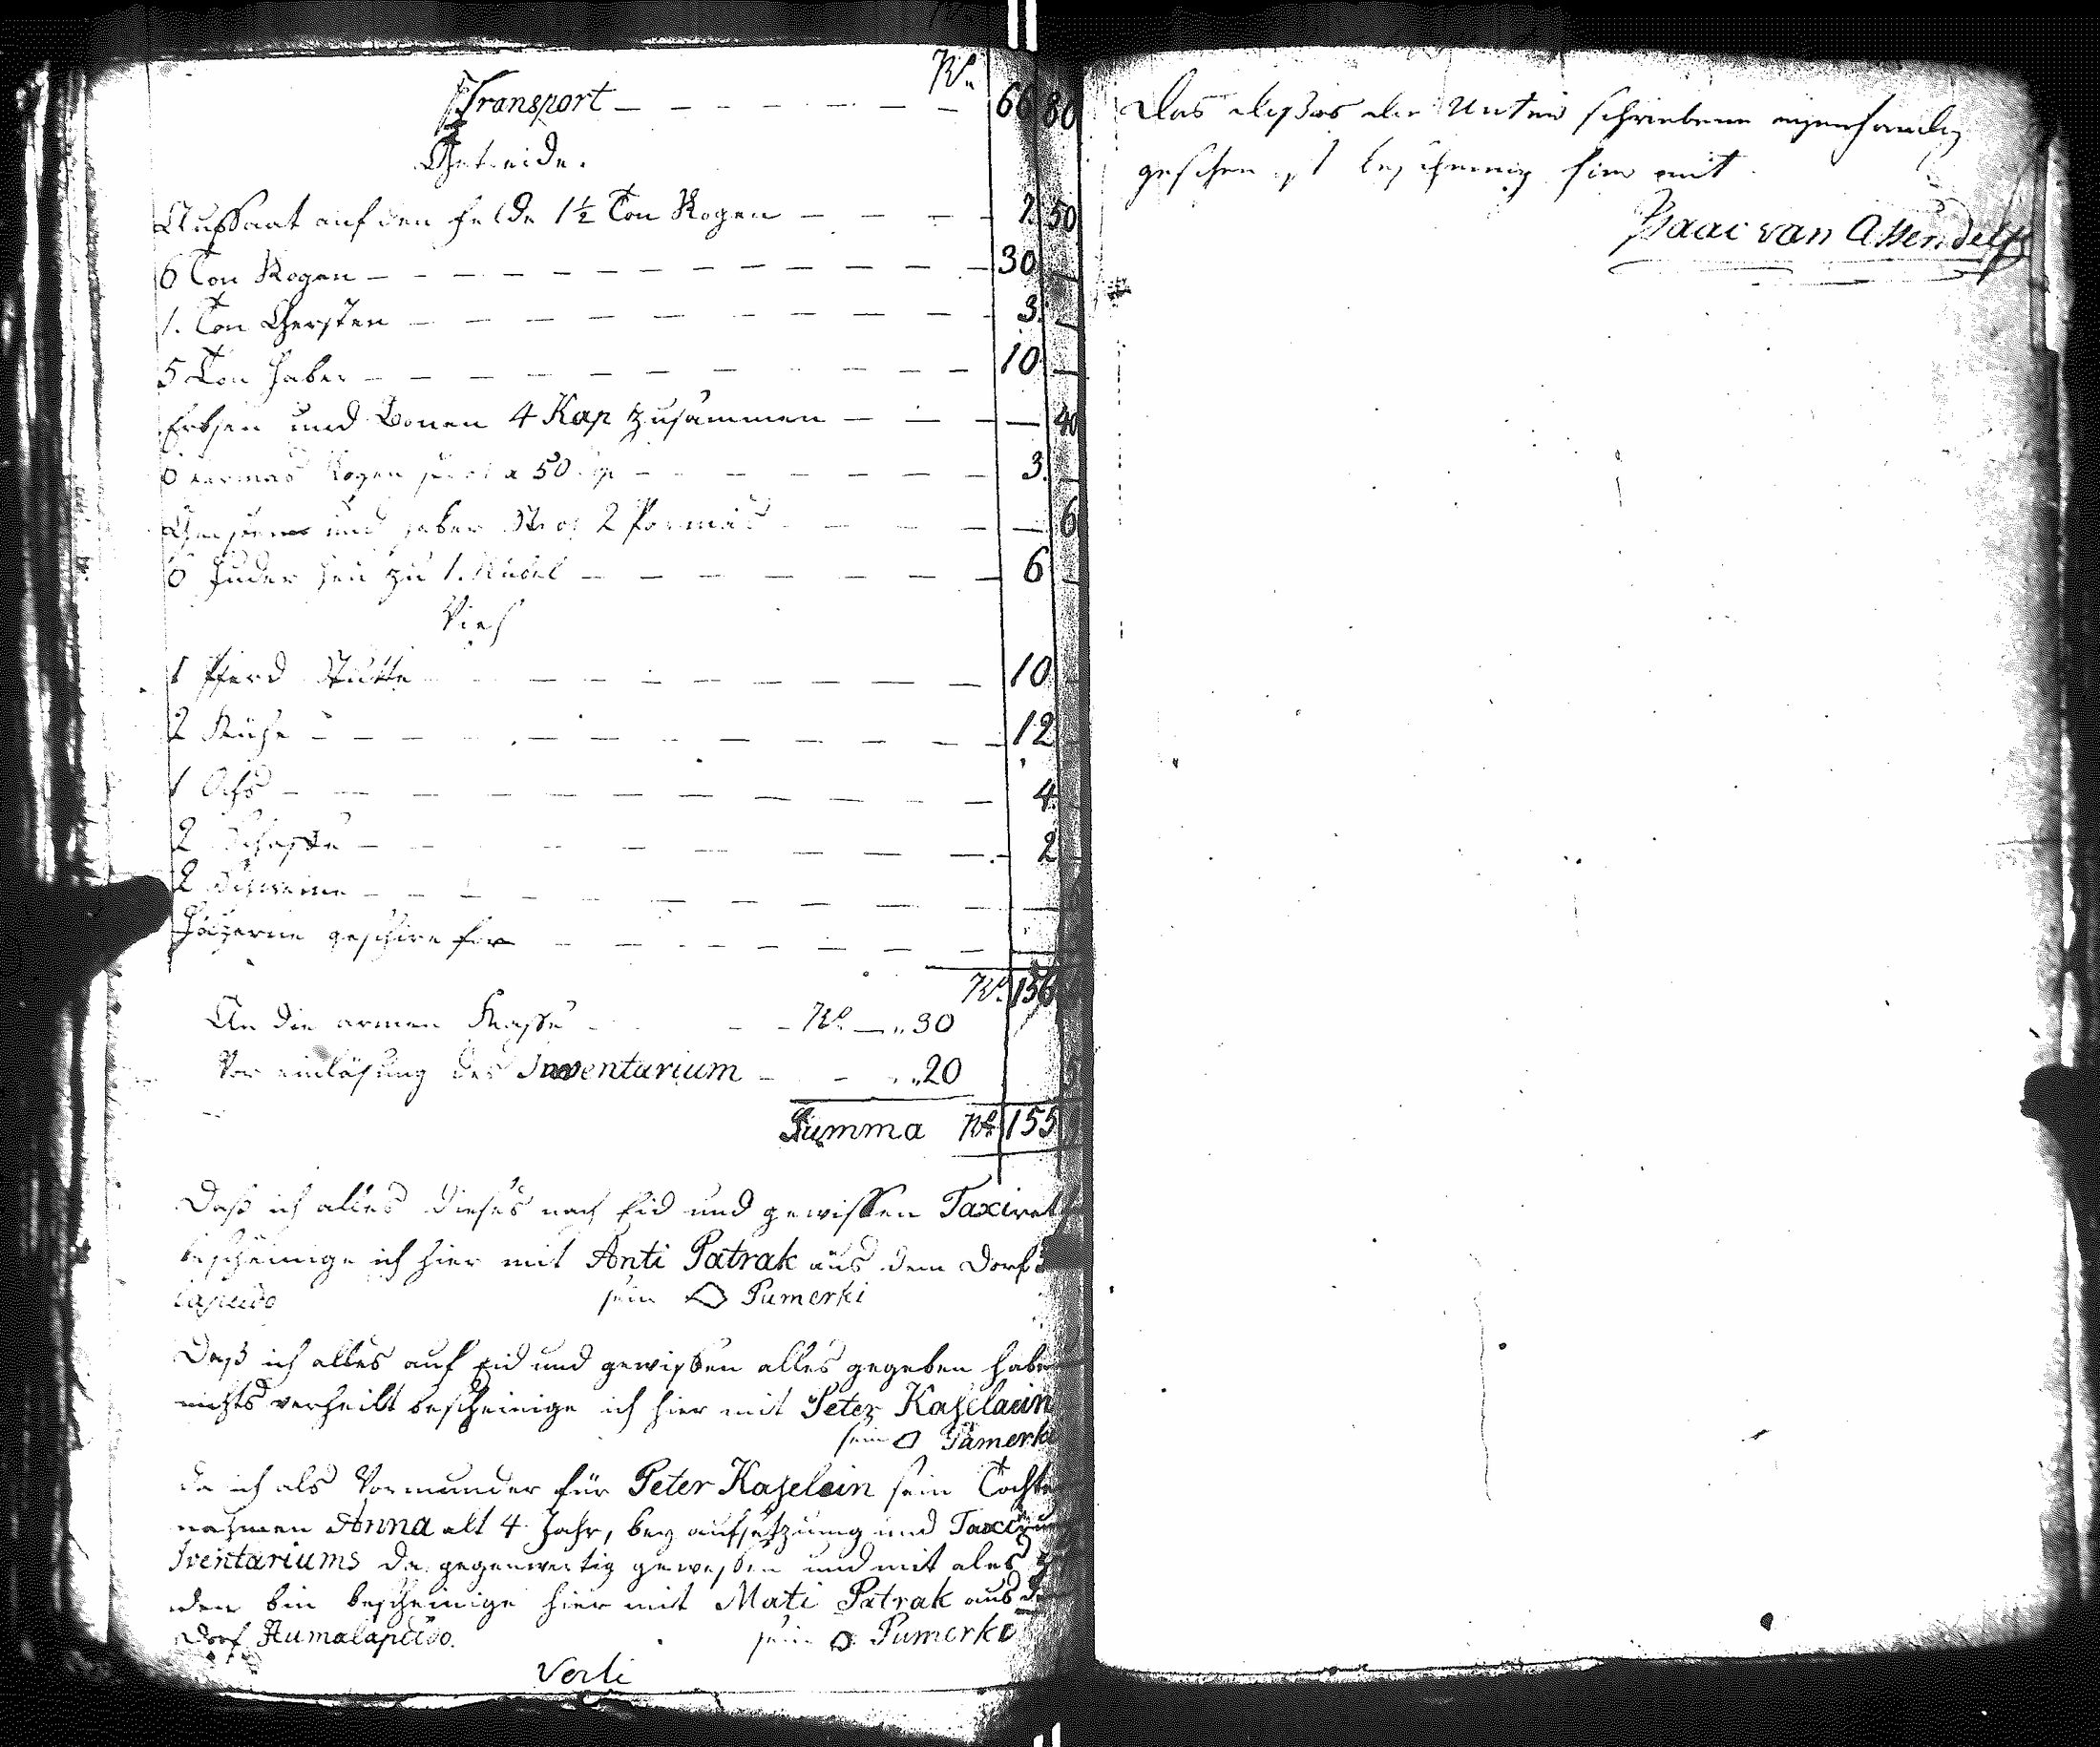 Rl.
Transport — — — — — — 66 80
Getreide.
Aussaat auf den felde 1½ Ton Rogen — — — — 7. 50
6 Ton Rogen — — — — — — — — 30 —
1. Ton Gersten — — — — — — — — 3. —
5 Ton Haber — — — — — — — — 10 —
Erbsen und Bonen 4 Kap zusammen — — — — 40
6 Rogen a 50 — — — — 3. —
und Haber Stro 2 Parmas — — — — 6
6 Fuder Heu zu 1. Rubel — — — — — 6 —
Vieh
1 Pferd Stutte — — — — — — — 10
2 Kühe — — — — — — — — 12
1 Ochs — — — — — — — — 4
2 Schaffe — — — — — — — — 2
2 Schweine — — — — — — — —
Hölzerne geschire for — — — — — —
Rl. 156
An die armen Kasse — — — Rl. — „ 30
Vor einlösung des Inventarium — — „ 20
Summa Rl. 155
Daß ich alles dieses nach Eid und gewissen Taxiret
bescheinige ich hier mit Anti Patrak aus dem Dorf
lapudo sein Pumerki
Daß ich alles auf Eid und gewissen alles gegeben habe
nichts verheilt bescheinige ich hier mit Peter Kaselain
sein Pumerki
da ich als Vormunder für Peter Kaselain sein Tochter
nahmen Anna alt 4 Jahr, bey aufsetzung und
Iventariums da gegenwertig gewessen und mit ales
den bin bescheinige hier mit Mati Patrak aus
Dorf Humalapudo. sein Pumerki
Verti
Das dießes die Unter schriebene eigenhandig
geschen ist bescheinig hier mit
Isaac van Assendelft